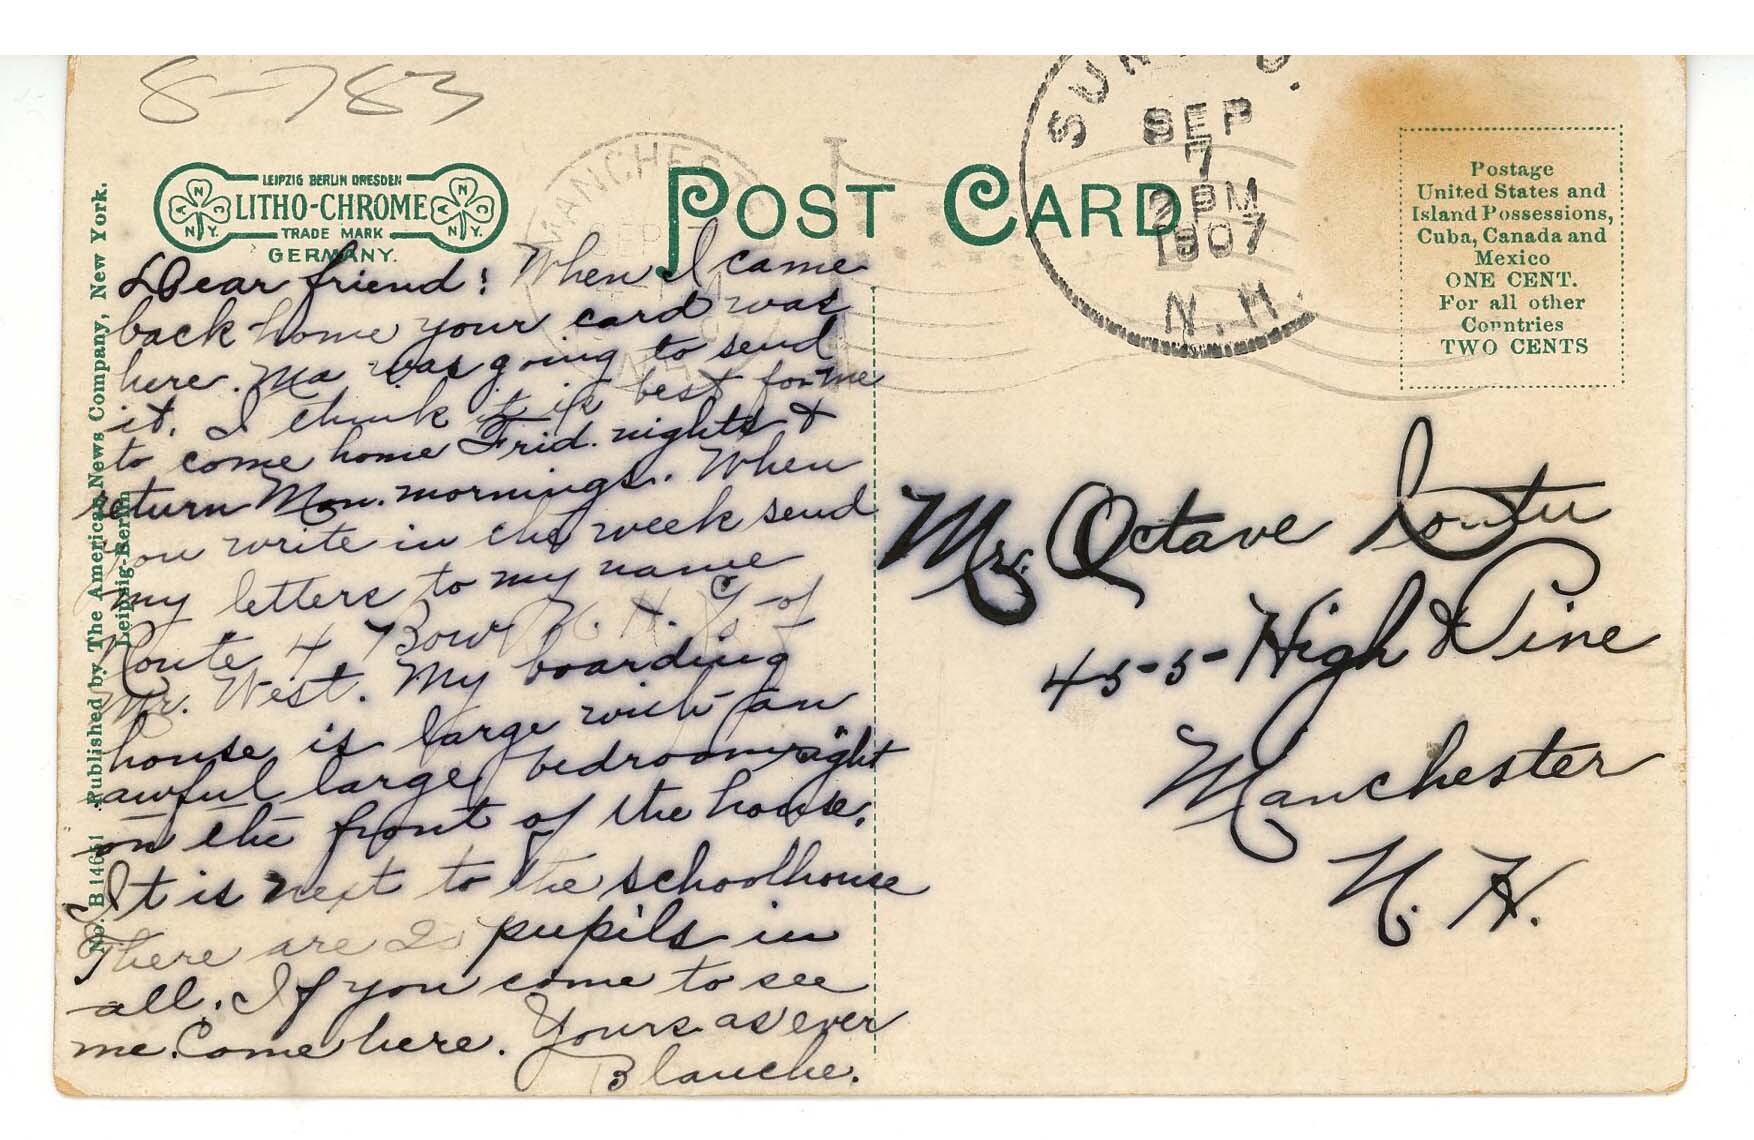 8-783
LEIPZIG BERLIN DRESDEN
LITHO-CHROME
TRADE MARK
GERMANY.
POST CARD
SEP
7
2 PM
1907
N.H.
MANCHEST
Postage
United States and
Island Possessions,
Cuba, Canada and
Mexico
ONE CENT.
For all other
Countries
TWO CENTS
No. B 14651 Published by The American News Company, New York.
Leipsig-Berlin
Dear friend! When I came
back home your card was
here. Ma was going to send
it. I think it is best for me
to come home Frid. nights &
return Mon. mornings. When
you write in the week send
my letters to my name
Route 4 Bow N. H. % of
Mr. West. My boarding
house is large with an
awful large bedroom right
on the front of the house.
It is next to the schoolhouse
There are pupils in
all. If you come to see
me. Come here. Yours as ever
Blanche.
Mr. Octave
455-High & Pine
Manchester
N. H.